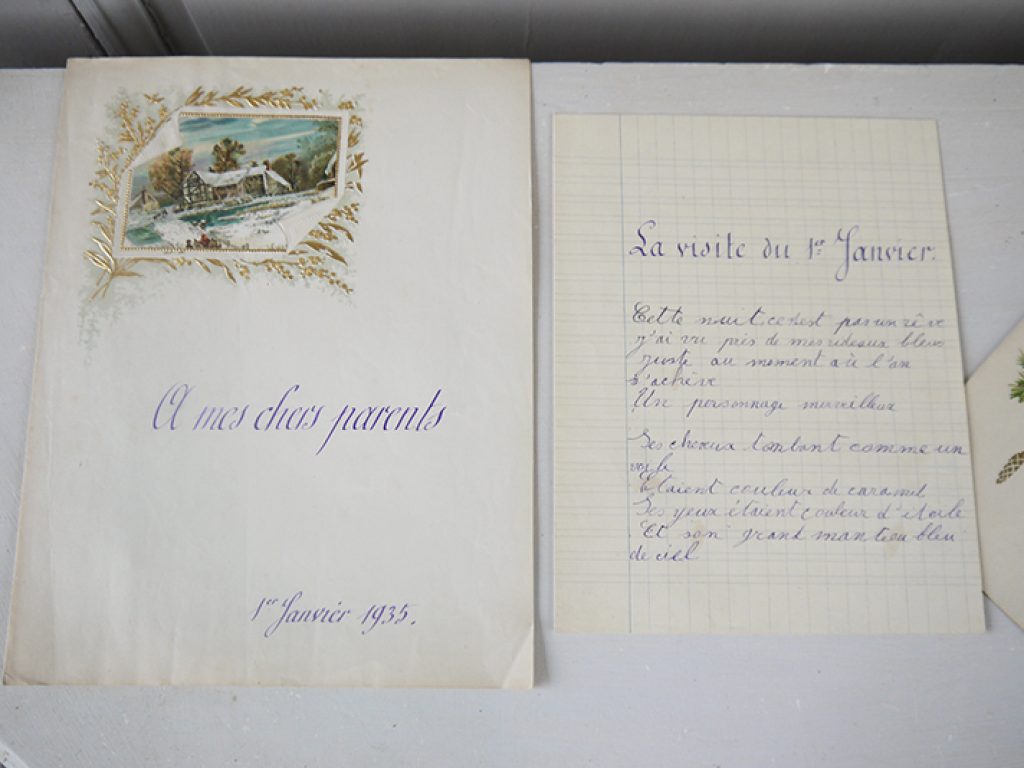 A mes chers parents
1er Janvier 1935.
La visite du 1er Janvier.
Cette nuit ce n'est pas un rêve
j'ai vu près de mes rideaux bleus
juste au moment où l'an
s'achève
Un personnage merveilleux
Ses cheveux tombant comme un
voile
Etaient couleur de caramel
Ses yeux étaient couleur d'étoile
Et son grand manteau bleu
de ciel